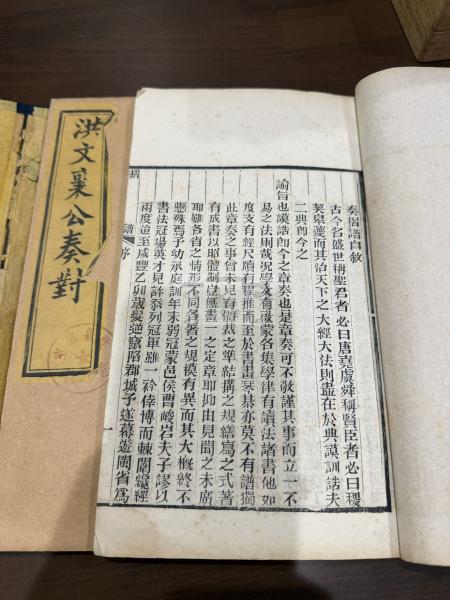 奏摺譜自敘
古今名盛世稱聖君者必曰唐堯虞舜稱賢臣者必曰稷
契皋夔而其治天下之大經大法則盡在於典謨訓誥夫
二典卽今之
諭旨也謨誥卽今之章奏也是章奏可不敬謹其事而立一不
易之法則哉況學文有啟蒙各集學律有讀法諸書他如
度支有經尺牘有稷推而至於書畫琴棊亦莫不有譜獨
此章奏之事曾未見有體裁之準結搆之規繕寫之式著
有成書以昭體制豈無畫一之定章耶抑由見聞之未廣
耶雖各省之情形不同各著之規模有異而其大概終不
懸殊焉予幼承庭訓年未弱冠蒙邑侯賈峻岩夫子謬以
書法冠場英才見許忝列冠軍雖一衿倖博而棘闈纔經
兩度迨至咸豐乙卯歲髮逆竄陷郡城予遂幕遊閩省爲
摺譜
序
一
洪文襄公奏對